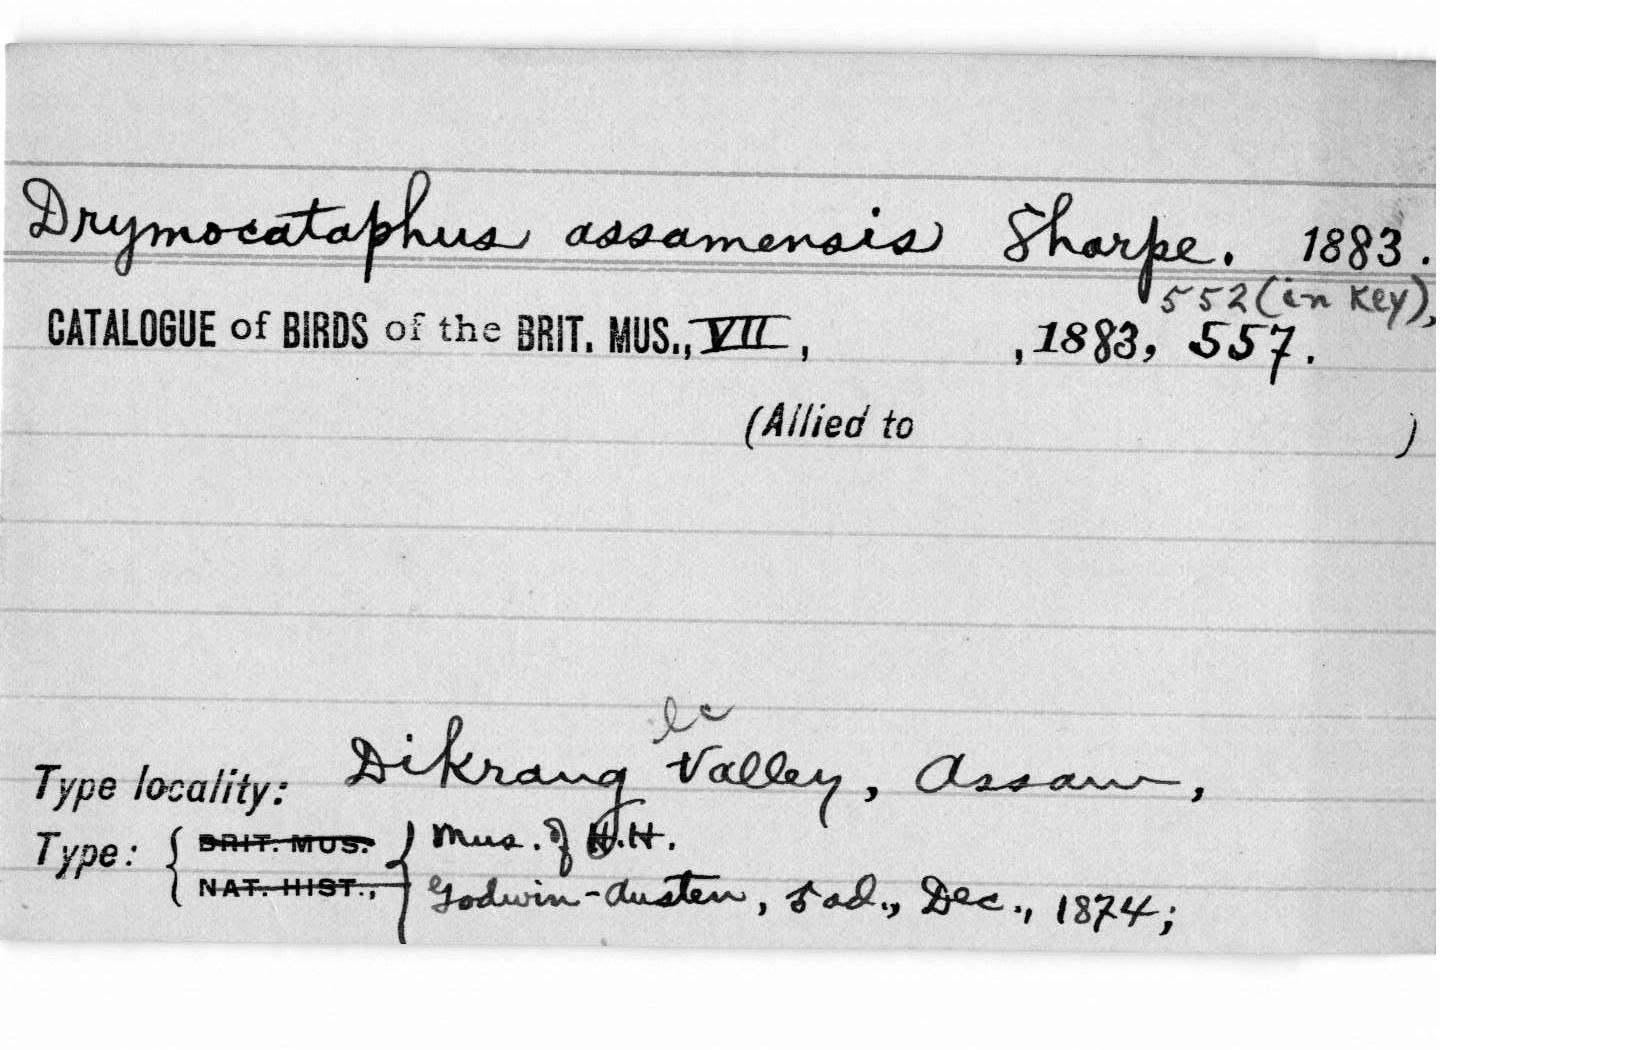 Drymocataphus assamensis Sharpe. 1883.
552 (in key),
CATALOGUE of BIRDS of the BRIT. MUS., VII, , 1883, 557.
(Allied to )
lc
Type locality: Dikrang Valley, Assam,
Type: { BRIT. MUS. } Mus. of H.H.
NAT. HIST., Godwin-Austen, 5 ad., Dec., 1874;